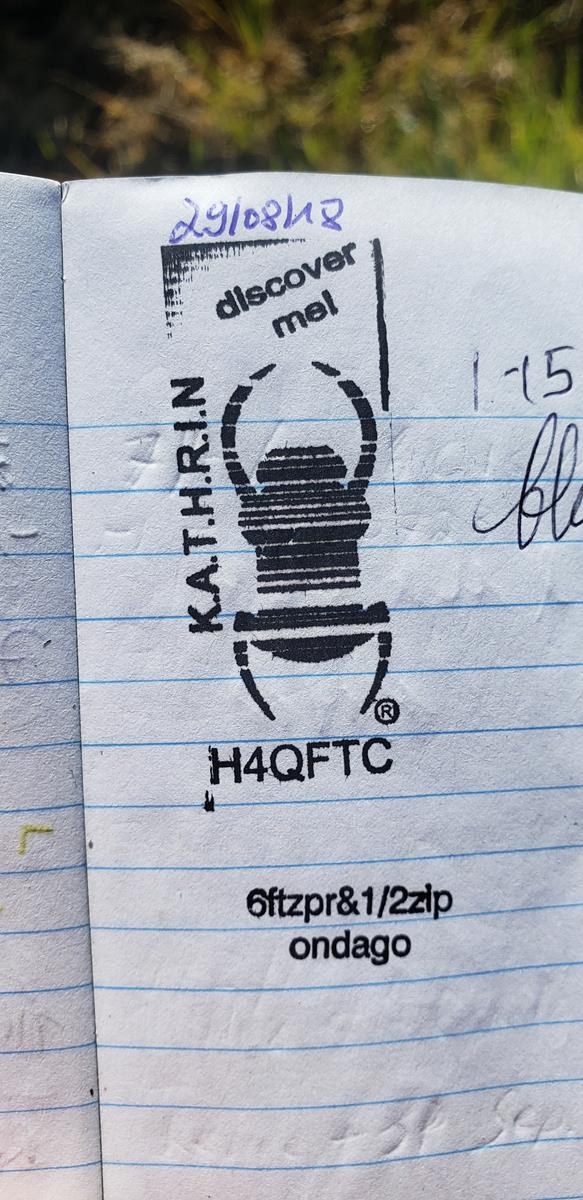 29/08/18
discover
me!
K.A.T.H.R.I.N
1-15
®
H4QFTC
6ftzpr&1/2zip
ondago